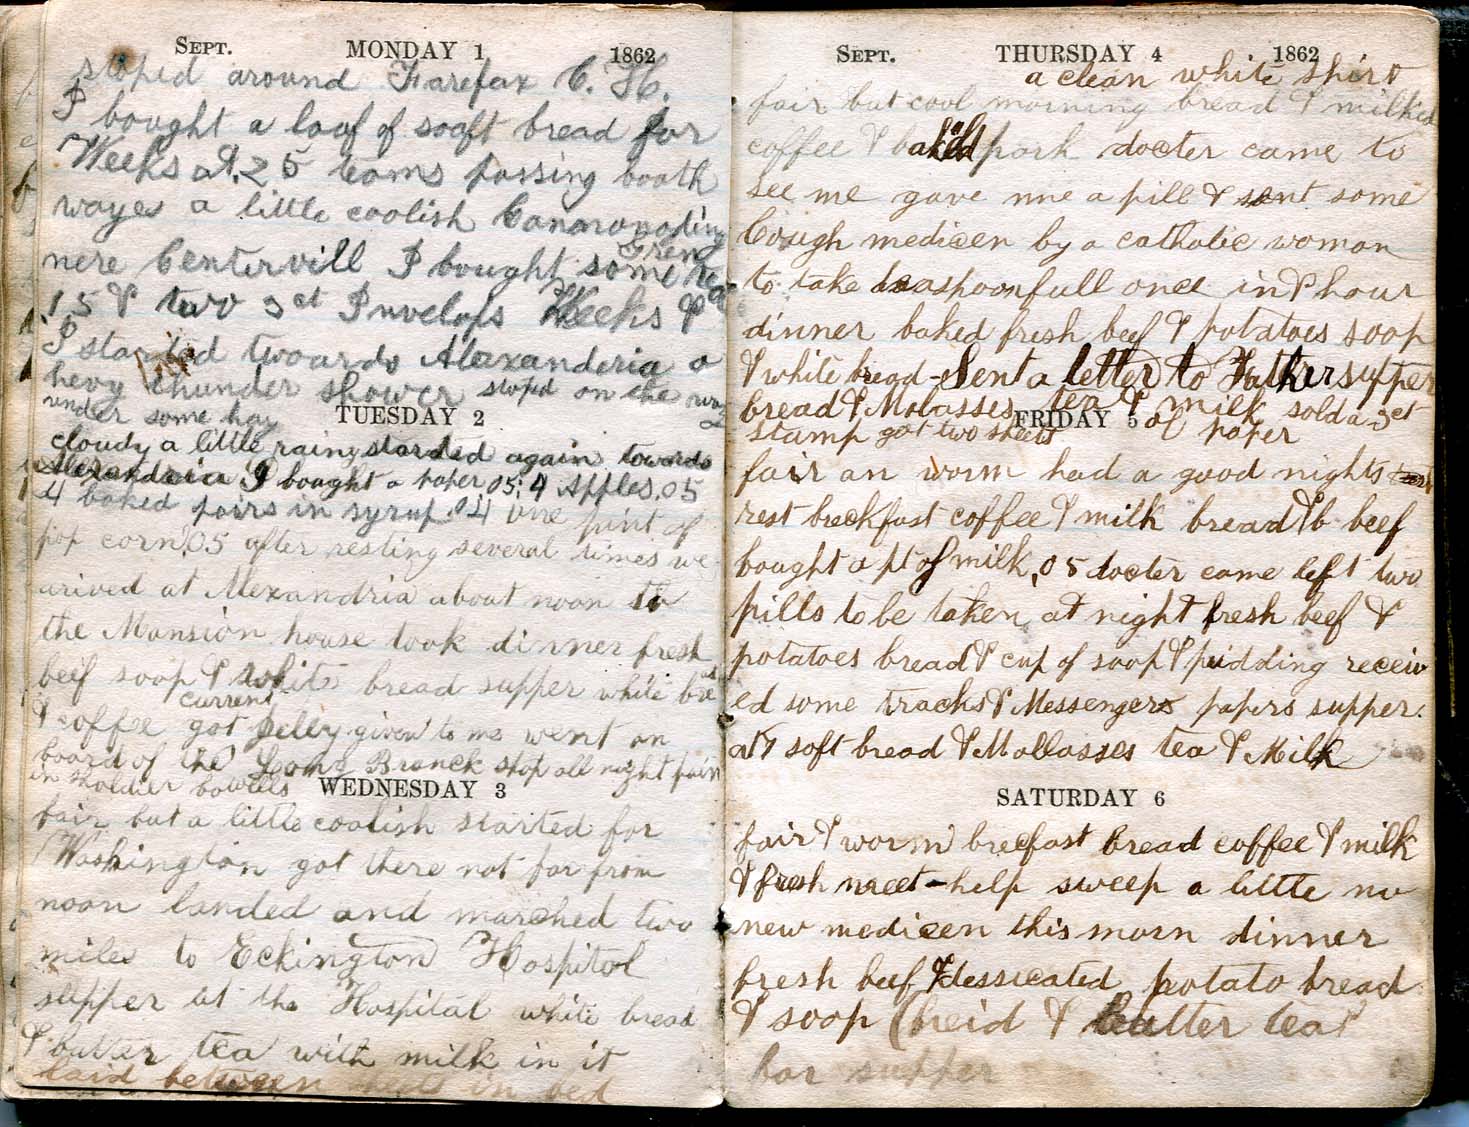 SEPT. MONDAY 1 1862
stoped around Farefax C. H.
I bought a loaf of sooft bread for
Weeks at .25 teams passing booth
wayes a little coolish Cannonading
nere Centervill I bought some Fren
15 & two 3 ct Invelops Weeks &
I started twoards Alexanderia a
hevy thunder shower stoped on the way
under some hay
TUESDAY 2
cloudy a little rainy started again towards
Alexandria I bought a paper 05, 4 Apples .05
4 baked pairs in syrup .04 one pint of
pop corn .05 after resting several times we
arived at Alexandria about noon to
the Mansion house took dinner fresh
beef soop & white bread supper white bread
& coffee got current jelley given to me went on
board of the stop all night pain
in sholdier bowells
WEDNESDAY 3
fair but a little coolish started for
Washington got there not far from
noon landed and marched two
miles to Eckington Hospitol
supper at the Hospital white bread
& butter tea with milk in it
laid between in bed
SEPT. THURSDAY 4 1862
a clean white shirt
fair but cool morning bread & milked
coffee & pork docter came to
see me gave me a pill & sent some
Cough medicen by a catholic woman
to take teaspoonfull once in & hour
dinner baked fresh beef & potatoes soop
& white bread - Sent a letter to Father supper
bread & Molasses tea & milk sold a 3 ct
stamp got two sheets of paper
FRIDAY 5
fair an worm had a good nights
rest breckfast coffee & milk bread & b beef
bought a pt of milk, 05 docter came left two
pills to be taken at night fresh beef &
potatoes bread & cup of soop & pudding receiv
ed some tracks & Messengers papers supper.
soft bread & Mollasses tea & Milk
SATURDAY 6
fair & worm brecfast bread coffee & milk
& fresh meet - help sweep a little no
new medicen this morn dinner
fresh beef & dessicated potato bread
& soop & butter tea
for supper